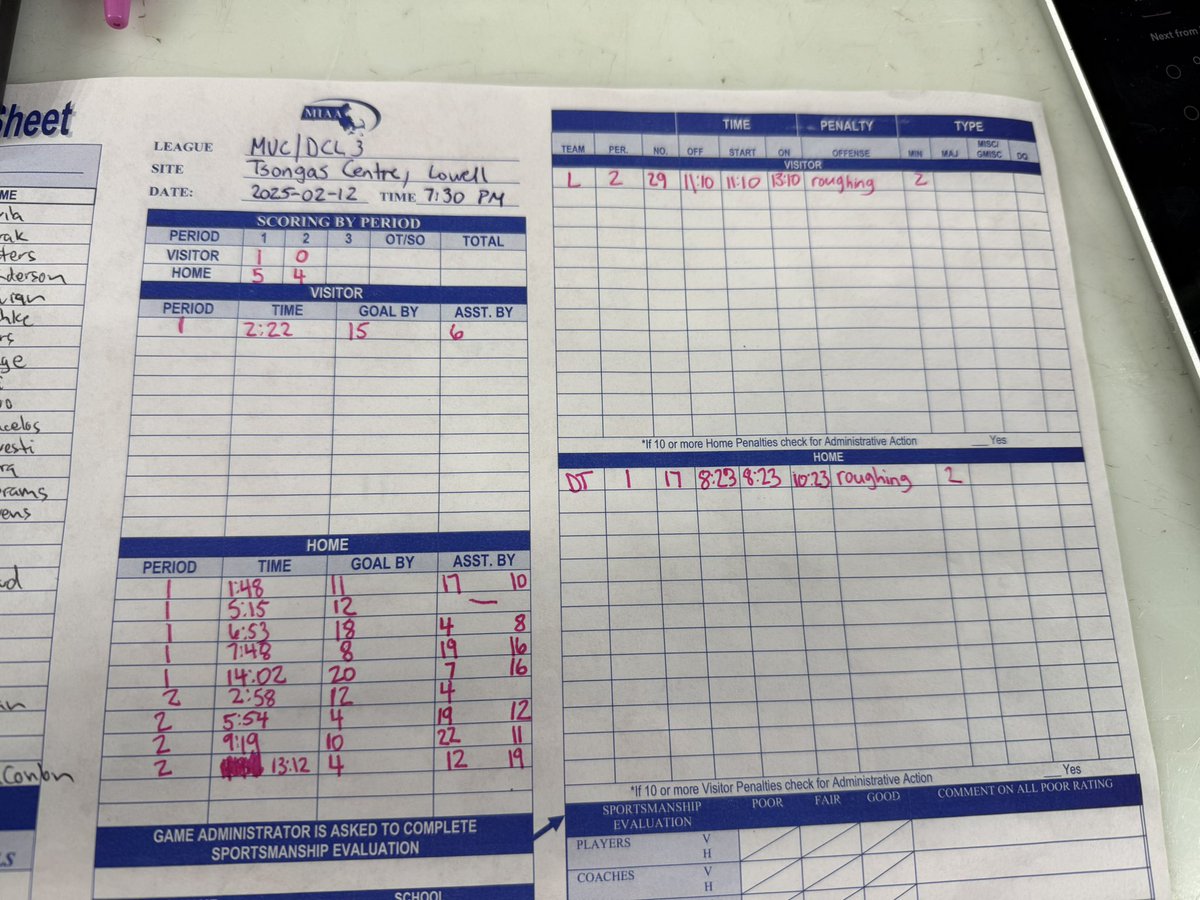 Sheet
MIAA
LEAGUE MVC/DCL 3
SITE Tsongas Centre, Lowell
DATE: 2025-02-12 TIME 7:30 PM
SCORING BY PERIOD
PERIOD 1 2 3 OT/SO TOTAL
VISITOR 1 0
HOME 5 4
VISITOR
PERIOD TIME GOAL BY ASST. BY
1 2:22 15 6
HOME
PERIOD TIME GOAL BY ASST. BY
1 1:48 11 17 10
1 5:15 12 —
1 6:53 18 4 8
1 7:48 8 19 16
1 14:02 20 7 16
2 2:58 12 4
2 5:54 4 19 12
2 9:19 10 22 11
2 13:12 4 12 19
GAME ADMINISTRATOR IS ASKED TO COMPLETE
SPORTSMANSHIP EVALUATION
SCHOOL
TIME PENALTY TYPE
TEAM PER. NO. OFF START ON OFFENSE MIN MAJ MISC/ GMISC DQ
VISITOR
L 2 29 11:10 11:10 13:10 roughing 2
*If 10 or more Home Penalties check for Administrative Action ___ Yes
HOME
DT 1 17 8:23 8:23 10:23 roughing 2
*If 10 or more Visitor Penalties check for Administrative Action ___ Yes
SPORTSMANSHIP EVALUATION POOR FAIR GOOD COMMENT ON ALL POOR RATING
PLAYERS V
H
COACHES V
H
Next from